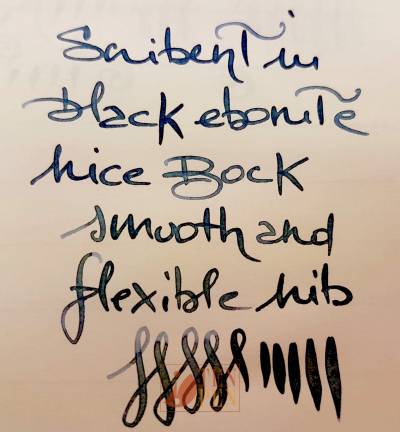 Scribent in
black ebonite
nice Bock
smooth and
flexible nib